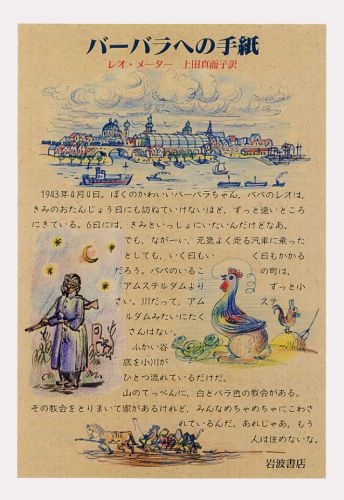 バーバラへの手紙
レオ・メーター　上田真而子訳
1943年4月4日。ぼくのかわいいバーバラちゃん、パパのレオは、
きみのおたんじょう日にも訪ねていけないほど、ずっと遠いところ
にきている。6日には、きみといっしょにいたいんだけどなあ。
でも、ながーい、元気よく走る汽車に乗った
としても、いく日もいく日もかかる
だろう。パパのいるこの町は、
アムステルダムよりずっと小
さい。川だって、アムステ
ルダムみたいにたく
さんはない。
ふかい谷
底を小川が
ひとつ流れているだけだ。
山のてっぺんに、白とバラ色の教会がある。
その教会をとりまいて家があるけれど、みんなめちゃめちゃにこわさ
れているんだ。あれじゃあ、もう
人は住めないな。
岩波書店